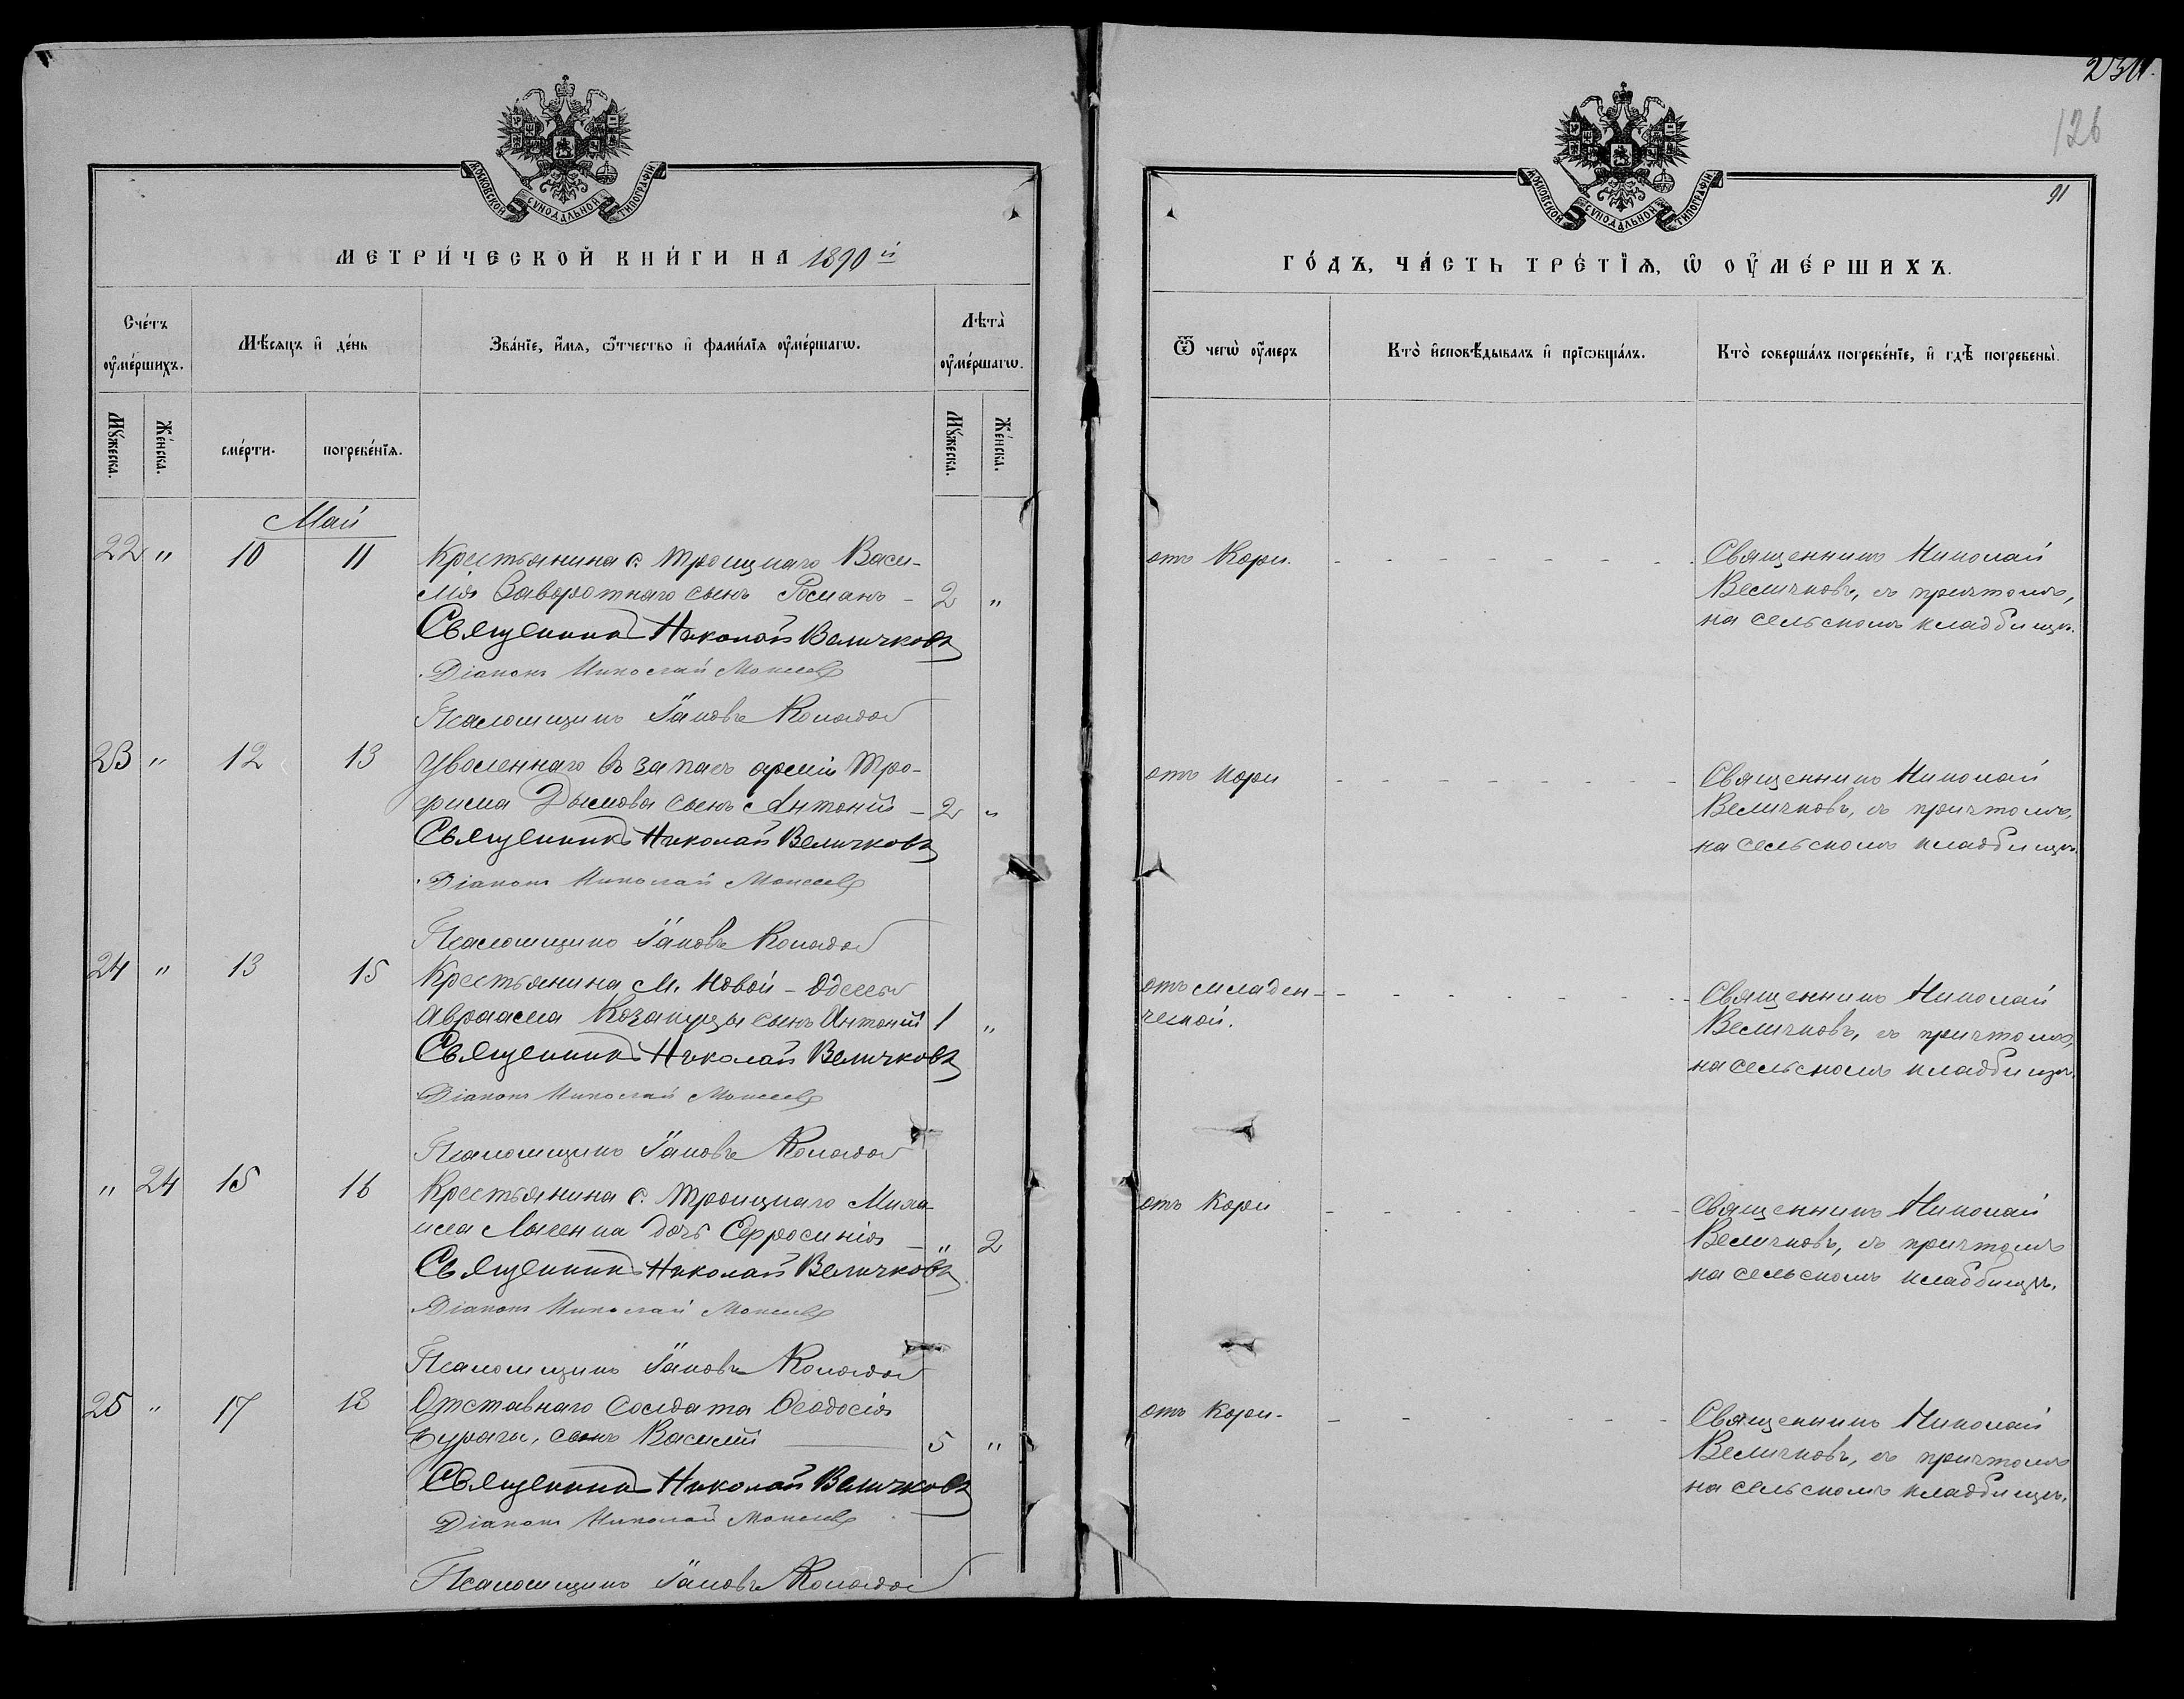 231
126
91
МОСКОВСКОЙ СѴНОДАЛЬНОЙ ТИПОГРАФІИ
МОСКОВСКОЙ СѴНОДАЛЬНОЙ ТИПОГРАФІИ
МЕТРИ́ЧЕСКОЙ КНИ́ГИ НА 1890й
ГО́ДЪ, ЧА́СТЬ ТРЕ́ТЇѦ, Ѡ ОУМЕ́РШИХЪ.
Сче́тъ оуме́ршихъ.
Мѣ́сяцъ и де́нь
Зва́нїе, и́мя, ѻ́тчество и фами́лїя оуме́ршагѡ.
Лѣта̀ оуме́ршагѡ.
Ѿ чегѡ̀ оу́меръ
Кто̀ исповѣ́дывалъ и прїѡбща́лъ.
Кто̀ соверша́лъ погребе́нїе, и гдѣ̀ погребены̀.
Му́жеска.
Же́нска.
сме́рти.
погребе́нїя.
Му́жеска.
Же́нска.
Май
22 " 10 11 Крестьянина с. Троицкаго Васи-
лія Заворотнаго сынъ Романъ - 2 "
Священникъ Николай Величковъ
Діаконъ Николай Моисеевъ
Псаломщикъ Іаковъ
отъ Кори.
Священникъ Николай
Величковъ, съ причтомъ,
на сельскомъ кладбищѣ.
23 " 12 13 Уволеннаго въ запасъ арміи Тро-
фима Дымова сынъ Антоній - 2 "
Священникъ Николай Величковъ
Діаконъ Николай Моисеевъ
Псаломщикъ Іаковъ
отъ кори
Священникъ Николай
Величковъ, съ причтомъ,
на сельскомъ кладбищѣ.
24 " 13 15 Крестьянина М. Новой-Одессы
Авраама сынъ Антоній 1 "
Священникъ Николай Величковъ
Діаконъ Николай Моисеевъ
Псаломщикъ Іаковъ
отъ младен-
ческой.
Священникъ Николай
Величковъ, съ причтомъ,
на сельскомъ кладбищѣ.
" 24 15 16 Крестьянина с. Троицкаго Миха-
ила дочь Ефросинія - " 2
Священникъ Николай Величковъ
Діаконъ Николай Моисеевъ
Псаломщикъ Іаковъ
отъ Кори
Священникъ Николай
Величковъ, съ причтомъ
на сельскомъ кладбищѣ.
25 " 17 18 Отставнаго Солдата Ѳеодосія
сынъ Василій 5 "
Священникъ Николай Величковъ
Діаконъ Николай Моисеевъ
Псаломщикъ Іаковъ
отъ Кори.
Священникъ Николай
Величковъ, съ причтомъ
на сельскомъ кладбищѣ.